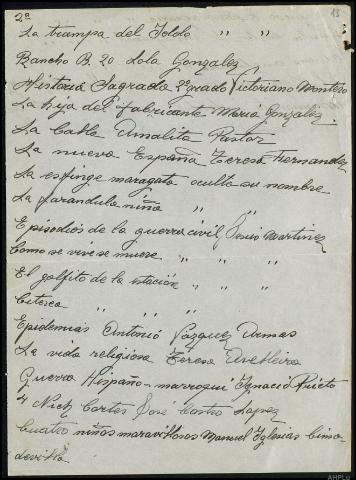 13
2º
La trampa del Toldo " "
Rancho B. 20 Lola Gonzalez
Historia Sagrada 2º grado Victoriano Montero
La hija del fabricante Maria Gonzalez.
La Cabla Amalita Pastor
La nueva España Teresa Fernandez
La esfinge maragata oculta su nombre
La farandula niña " "
Episodios de la guerra civil Jesus Martinez
Como se vive se muere " " "
El golfito de la estación " " "
Citerea " " " "
Epidemias Antonio Vazquez Armas
La vida religiosa Teresa
Guerra Hispano-marroqui Ignacio Prieto
4 Nick Carter José Castro Lopez
Cuatro niños maravillosos Manuel Iglesias Cima-
devilla
AHPLu